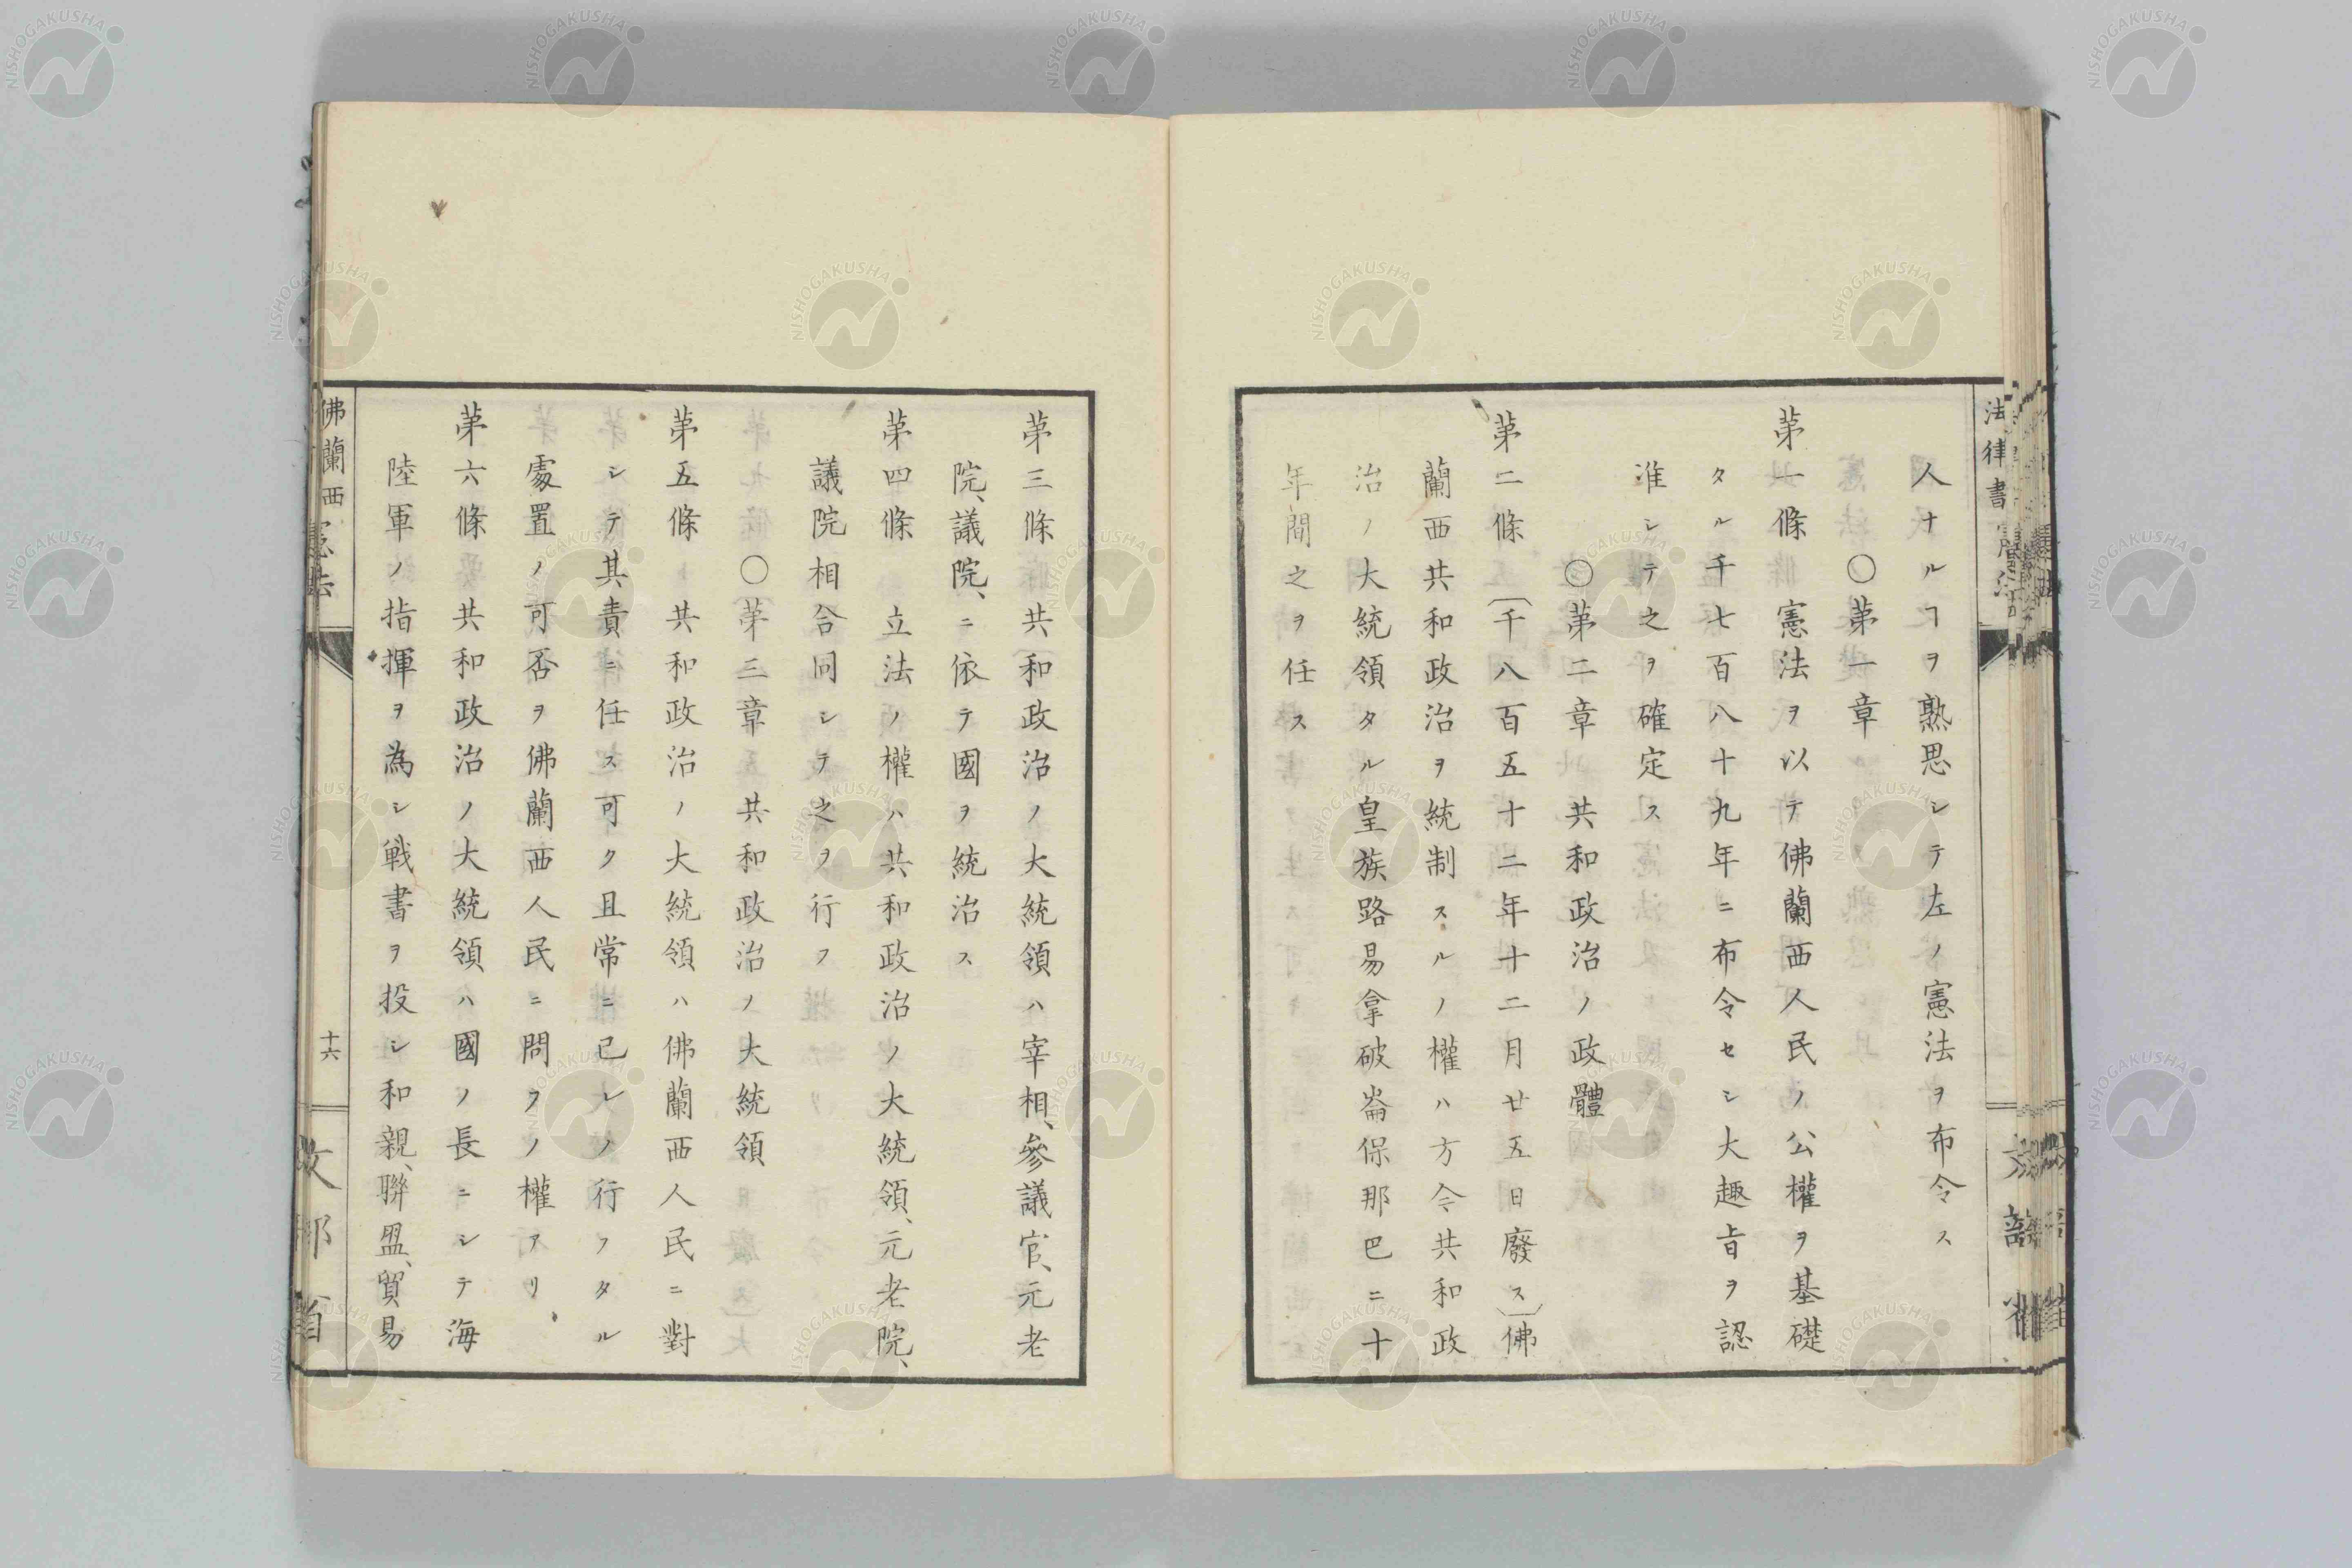 法律書
人ナルヿヲ熟思シテ左ノ憲法ヲ布令ス
〇第一章
第一條憲法ヲ以テ佛蘭西人民ノ公權ヲ基礎
タル千七百八十九年ニ布令セシ大趣旨ヲ認
准シテ之ヲ確定ス
〇第二章 共和政治ノ政體
第二條(千八百五十二年十二月廿五日廢ス)佛
蘭西共和政治ヲ統制スルノ權ハ方今共和政
治ノ大統領タル皇族路易拿破崙保那巴ニ十
年間之ヲ任ス
第三條 共和政治ノ大統領ハ宰相、參議官、元老
院、議院、ニ依テ國ヲ統治ス
第四條 立法ノ權ハ共和政治ノ大統領、元老院、
議院相合同シテ之ヲ行フ
〇第三章 共和政治ノ大統領
第五條 共和政治ノ大統領ハ佛蘭西人民ニ對
シテ其責ニ任ス可ク且常ニ已レノ行フタル
處置ノ可否ヲ佛蘭西人民ニ問フノ權アリ
第六條 共和政治ノ大統領ハ國ノ長ニシテ海
陸軍ノ指揮ヲ為シ戦書ヲ投シ和親、聯盟、貿易
佛蘭西憲法
十六
文部省
NISHOGAKUSHA